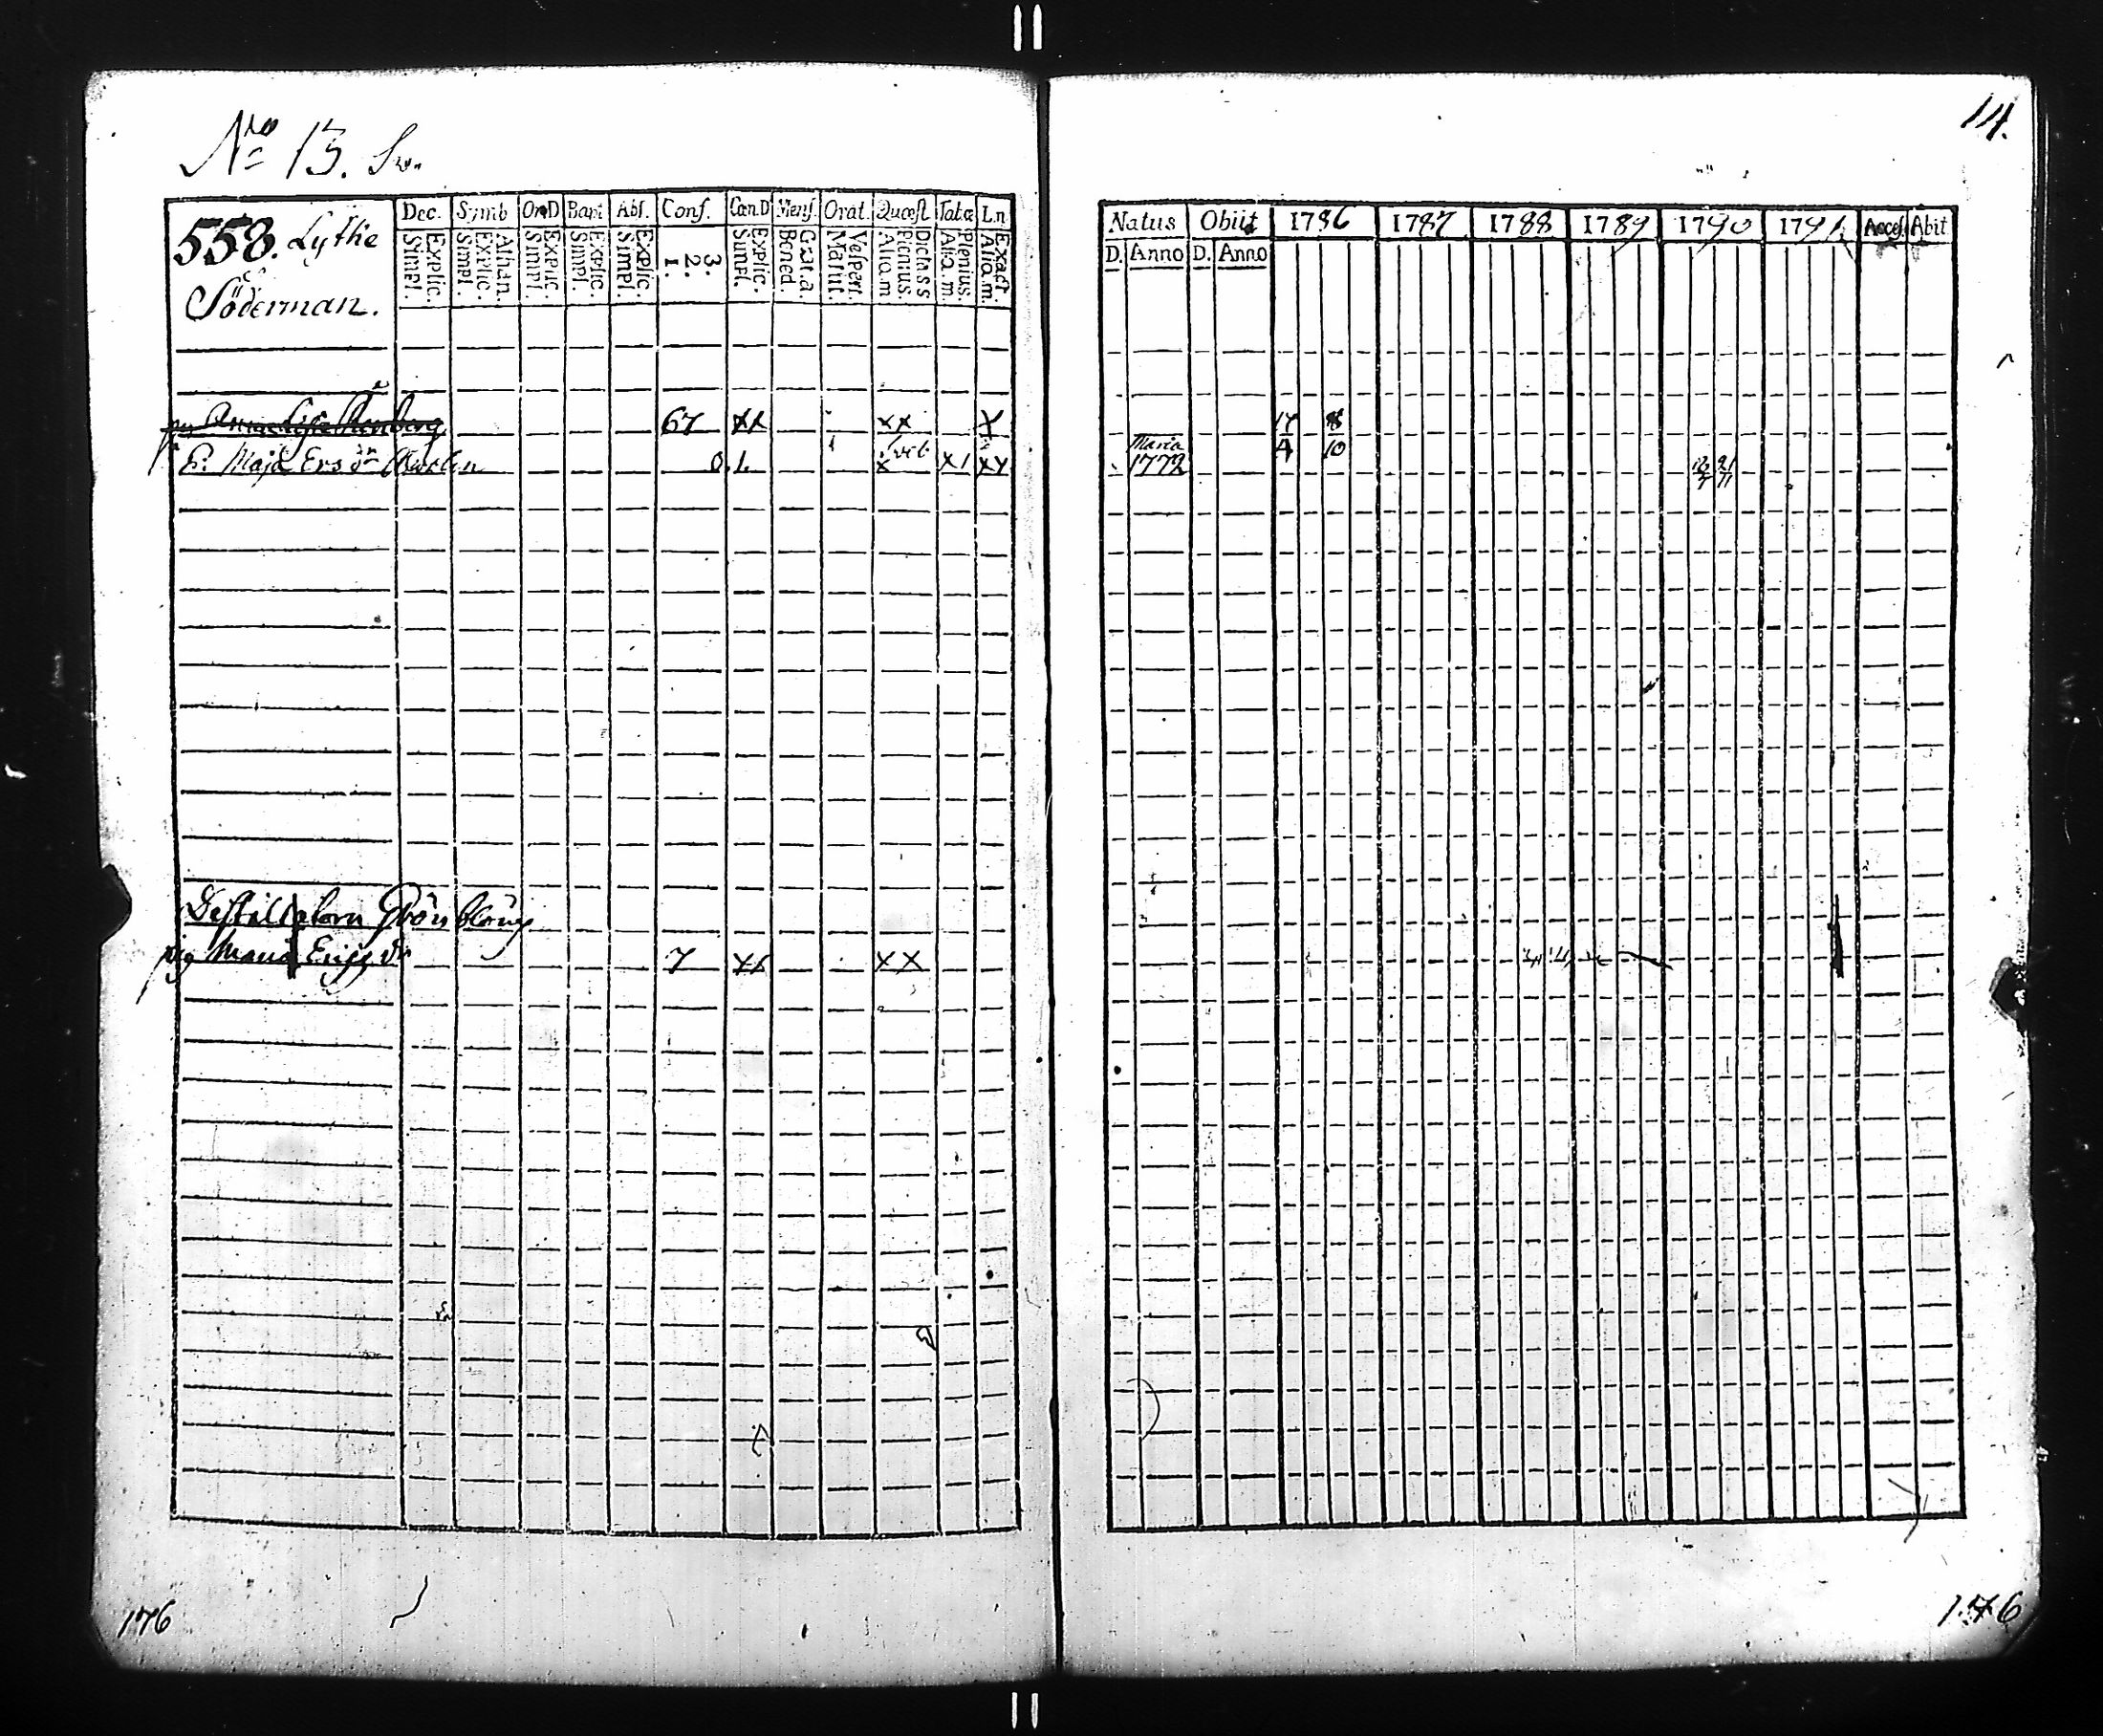 No 13. Sv.
14.
558. Lythe
Söderman.
Dec. Symb OraD Bapt Abs. Conf. Can.D Mens. Orat. Quæst Tabæ L.n
Explic. Simpl. Athan. Explic. Simpl. Explic. Simpl. Explic. Simpl. Explic. Simpl. 3. 2. 1. Explic. Simpl. Grat. a. Bened. Vespert. Matut. Dictass Plenius. Aliq. m Plenius. Aliq. m. Exact. Aliq. m.
Natus Obiit 1786 1787 1788 1789 1790 1791 Acces Abit
D. Anno D. Anno
67 xx xx x 17 8
Maria 4 10
E: Maja Ers dr 0.1. x x1 xx 1772
Destillatorn
pig Maria Erigs dr 7 xx xx
176
176